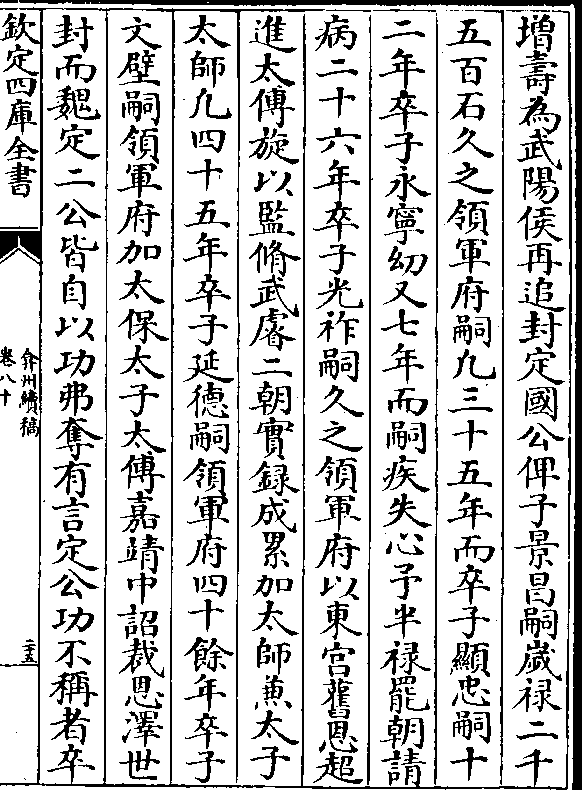 增壽為武陽侯再追封定國公俾子景昌嗣歲祿二千
五百石久之領軍府嗣凡三十五年而卒子顯忠嗣十
二年卒子永寧幼又七年而嗣疾失心予半祿罷朝請
病二十六年卒子光祚嗣久之領軍府以東宮舊恩超
進太傅旋以監脩武廟二朝實録成累加太師兼太子
太師凡四十五年卒子延德嗣領軍府四十餘年卒子
文壁嗣領軍府加太保太子太傅嘉靖中詔裁恩澤世
封而魏定二公皆自以功弗奪有言定公功不稱者卒
欽定四庫全書
弇州續稿
卷八十
二十五